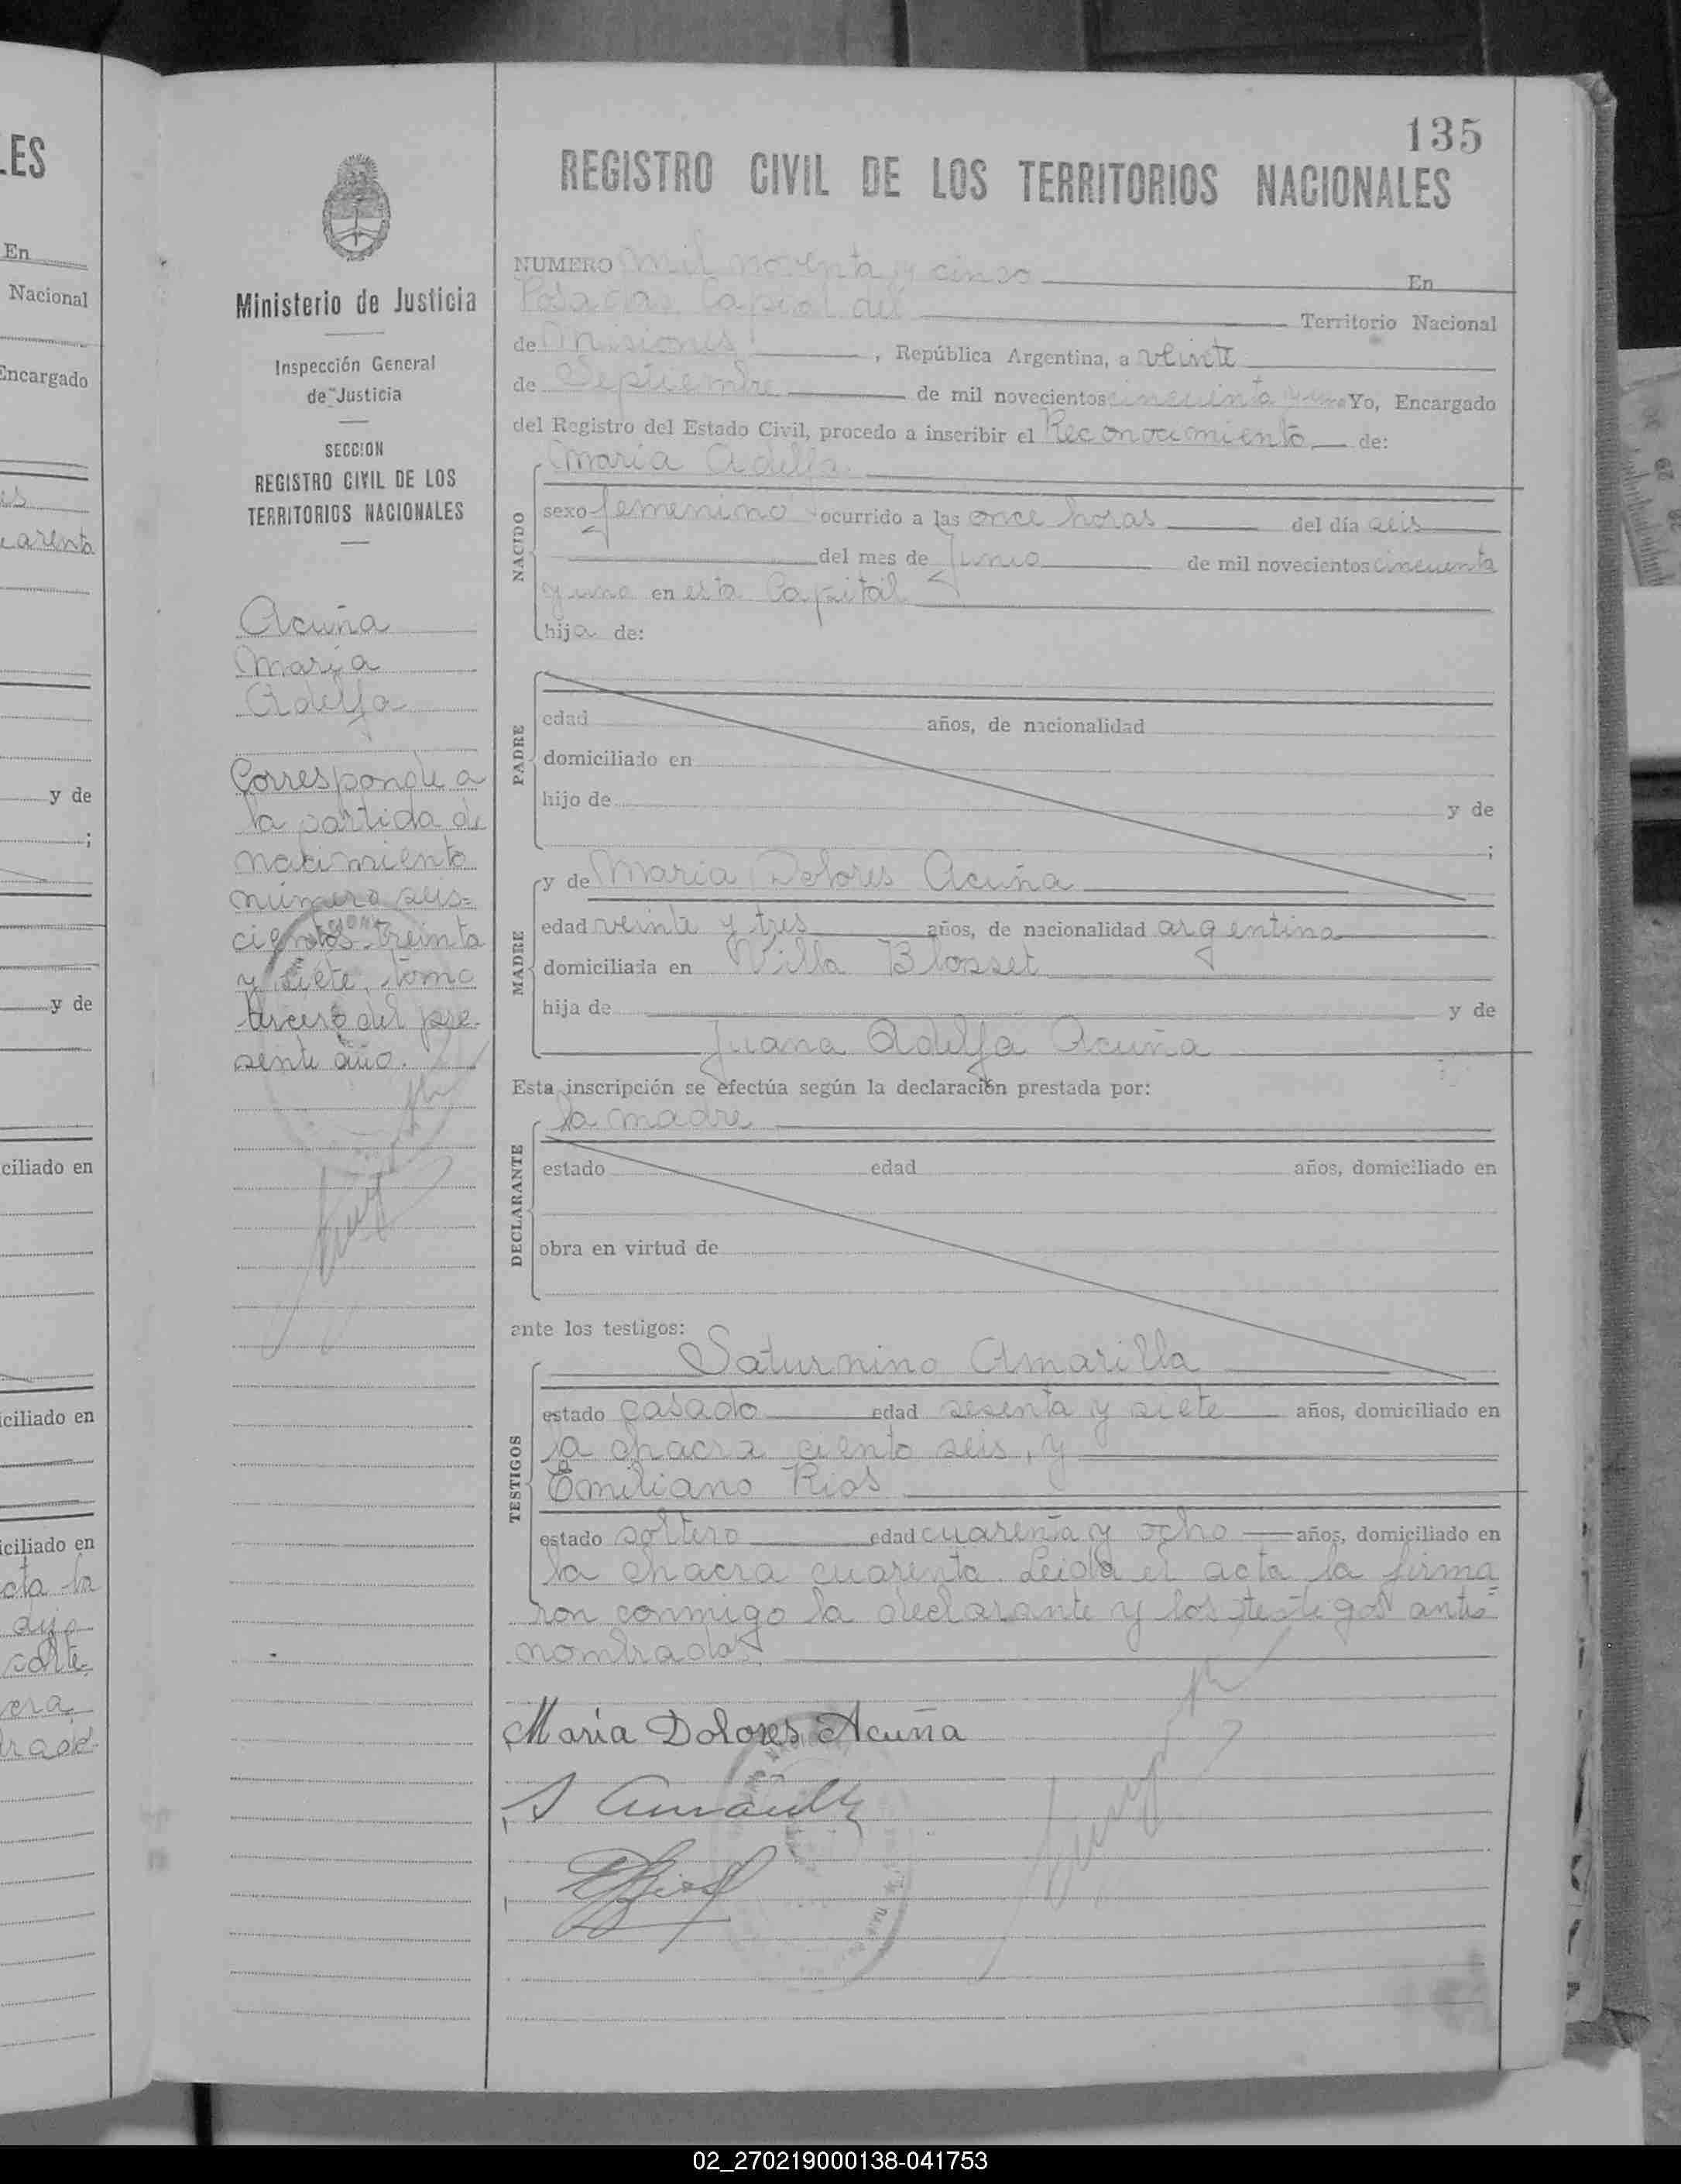 LES
En
Nacional
Encargado
arenta
y de
;
y de
ciliado en
iciliado en
iciliado en
acta la
dijo
vera
Ministerio de Justicia
Inspección General
de Justicia
SECCION
REGISTRO CIVIL DE LOS
TERRITORIOS NACIONALES
Acuña
Maria
Adelfa
Corresponde a
la partida de
nacimiento
número seis=
cientos treinta
y siete, tomo
tercero del pre-
sente año.
135
REGISTRO CIVIL DE LOS TERRITORIOS NACIONALES
NUMERO mil noventa y cinco En
Posadas Capital del Territorio Nacional
de Misiones, República Argentina, a veinte
de Septiembre de mil novecientos cincuenta y uno Yo, Encargado
del Registro del Estado Civil, procedo a inscribir el Reconocimiento de:
Maria Adelfa
NACIDO
sexo femenino ocurrido a las once horas del día seis
del mes de Junio de mil novecientos cincuenta
y uno en esta Capital
hija de:
PADRE
edad años, de nacionalidad
domiciliado en
hijo de y de
;
MADRE
y de Maria Dolores Acuña
edad veinte y tres años, de nacionalidad argentina
domiciliada en Villa Blosset
hija de y de
Juana Adelfa Acuña
Esta inscripción se efectúa según la declaración prestada por:
DECLARANTE
la madre
estado edad años, domiciliado en
obra en virtud de
ante los testigos:
TESTIGOS
Saturnino Amarilla
estado casado edad sesenta y siete años, domiciliado en
la chacra ciento seis, y
Emiliano Rios
estado soltero edad cuarenta y ocho años, domiciliado en
la chacra cuarenta. Leida el acta la firma=
ron conmigo la declarante y los testigos ante=
nombrados.
Maria Dolores Acuña
S Amarilla
ERios
02_270219000138-041753